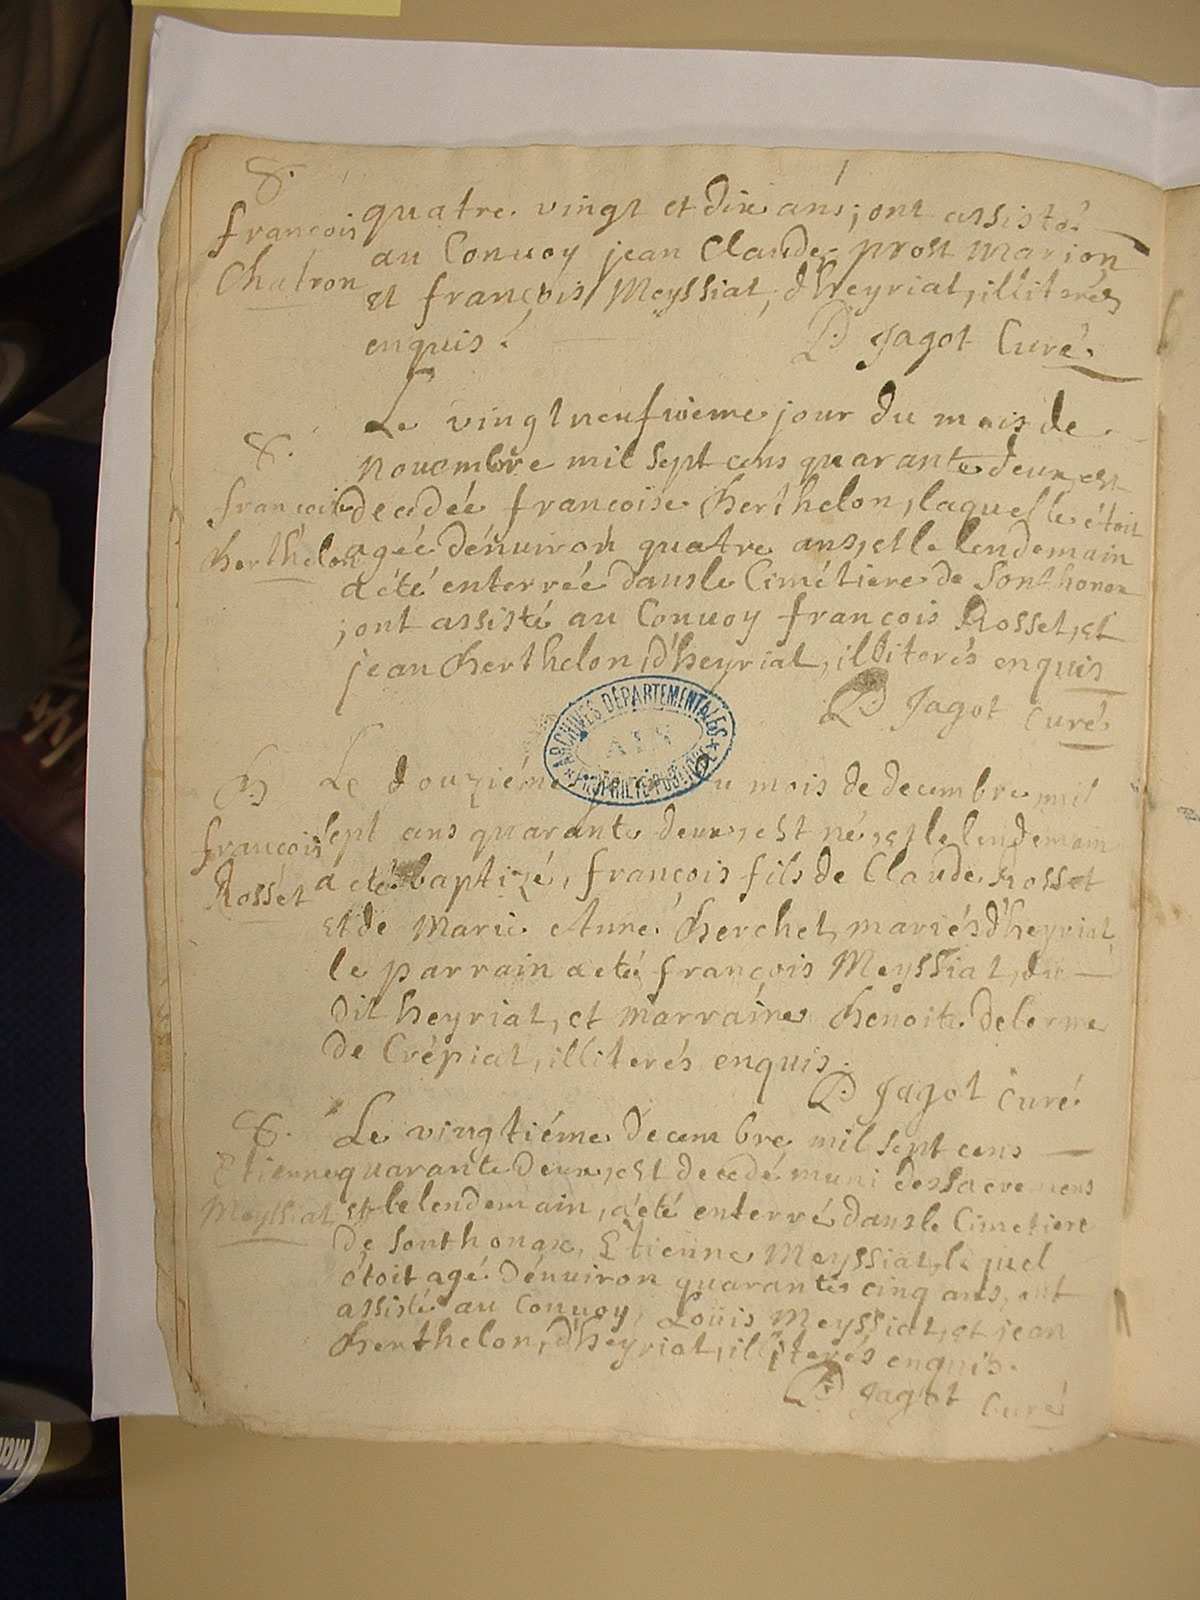 S.
françois
Chatron
quatre vingt et dix ans; ont assisté
au Convoy jean Claude prost Marion
et françois Meyssiat, d'heyriat, illiterés
enquis.
P. Jagot Curé.
S.
françoise
Berthelon
Le vingt neufvieme jour du mois de
novembre mil sept cens quarante deux, est
decedée françoise Berthelon, laquelle étoit
agée d'environ quatre ans, et le lendemain
a été enterrée dans le Cimétiere de Sonthonax
; ont assisté au Convoy françois Rosset, et
jean Berthelon, d'heyriat, illiterés enquis
P. Jagot curé
ARCHIVES DÉPARTEMENTALES
AIN
PROPRIÉTÉ PUBLIQUE
B
françois
Rosset
Le douziéme jour du mois de decembre mil
sept cens quarante deux, est né, et le lendemain
a eté baptizé, françois fils de Claude Rosset
et de Marie Anne Berchet, mariés d'heyriat,
le parrain a eté françois Meyssiat, du
dit heyriat, et marraine Benoite delorme
de Crépiat, illiterés enquis.
P. Jagot Curé
S.
Etienne
Meyssiat
Le vingtiéme decembre mil sept cens
quarante deux, est decedé muni des sacremens
et le lendemain, a été enterré dans le Cimetiere
de Sonthonax, Etienne Meyssiat, lequel
étoit agé d'environ quarante cinq ans, ont
assisté au Convoy, Loüis Meyssiat, et jean
Berthelon, d'heyriat, illiterés enquis.
P. Jagot Curé